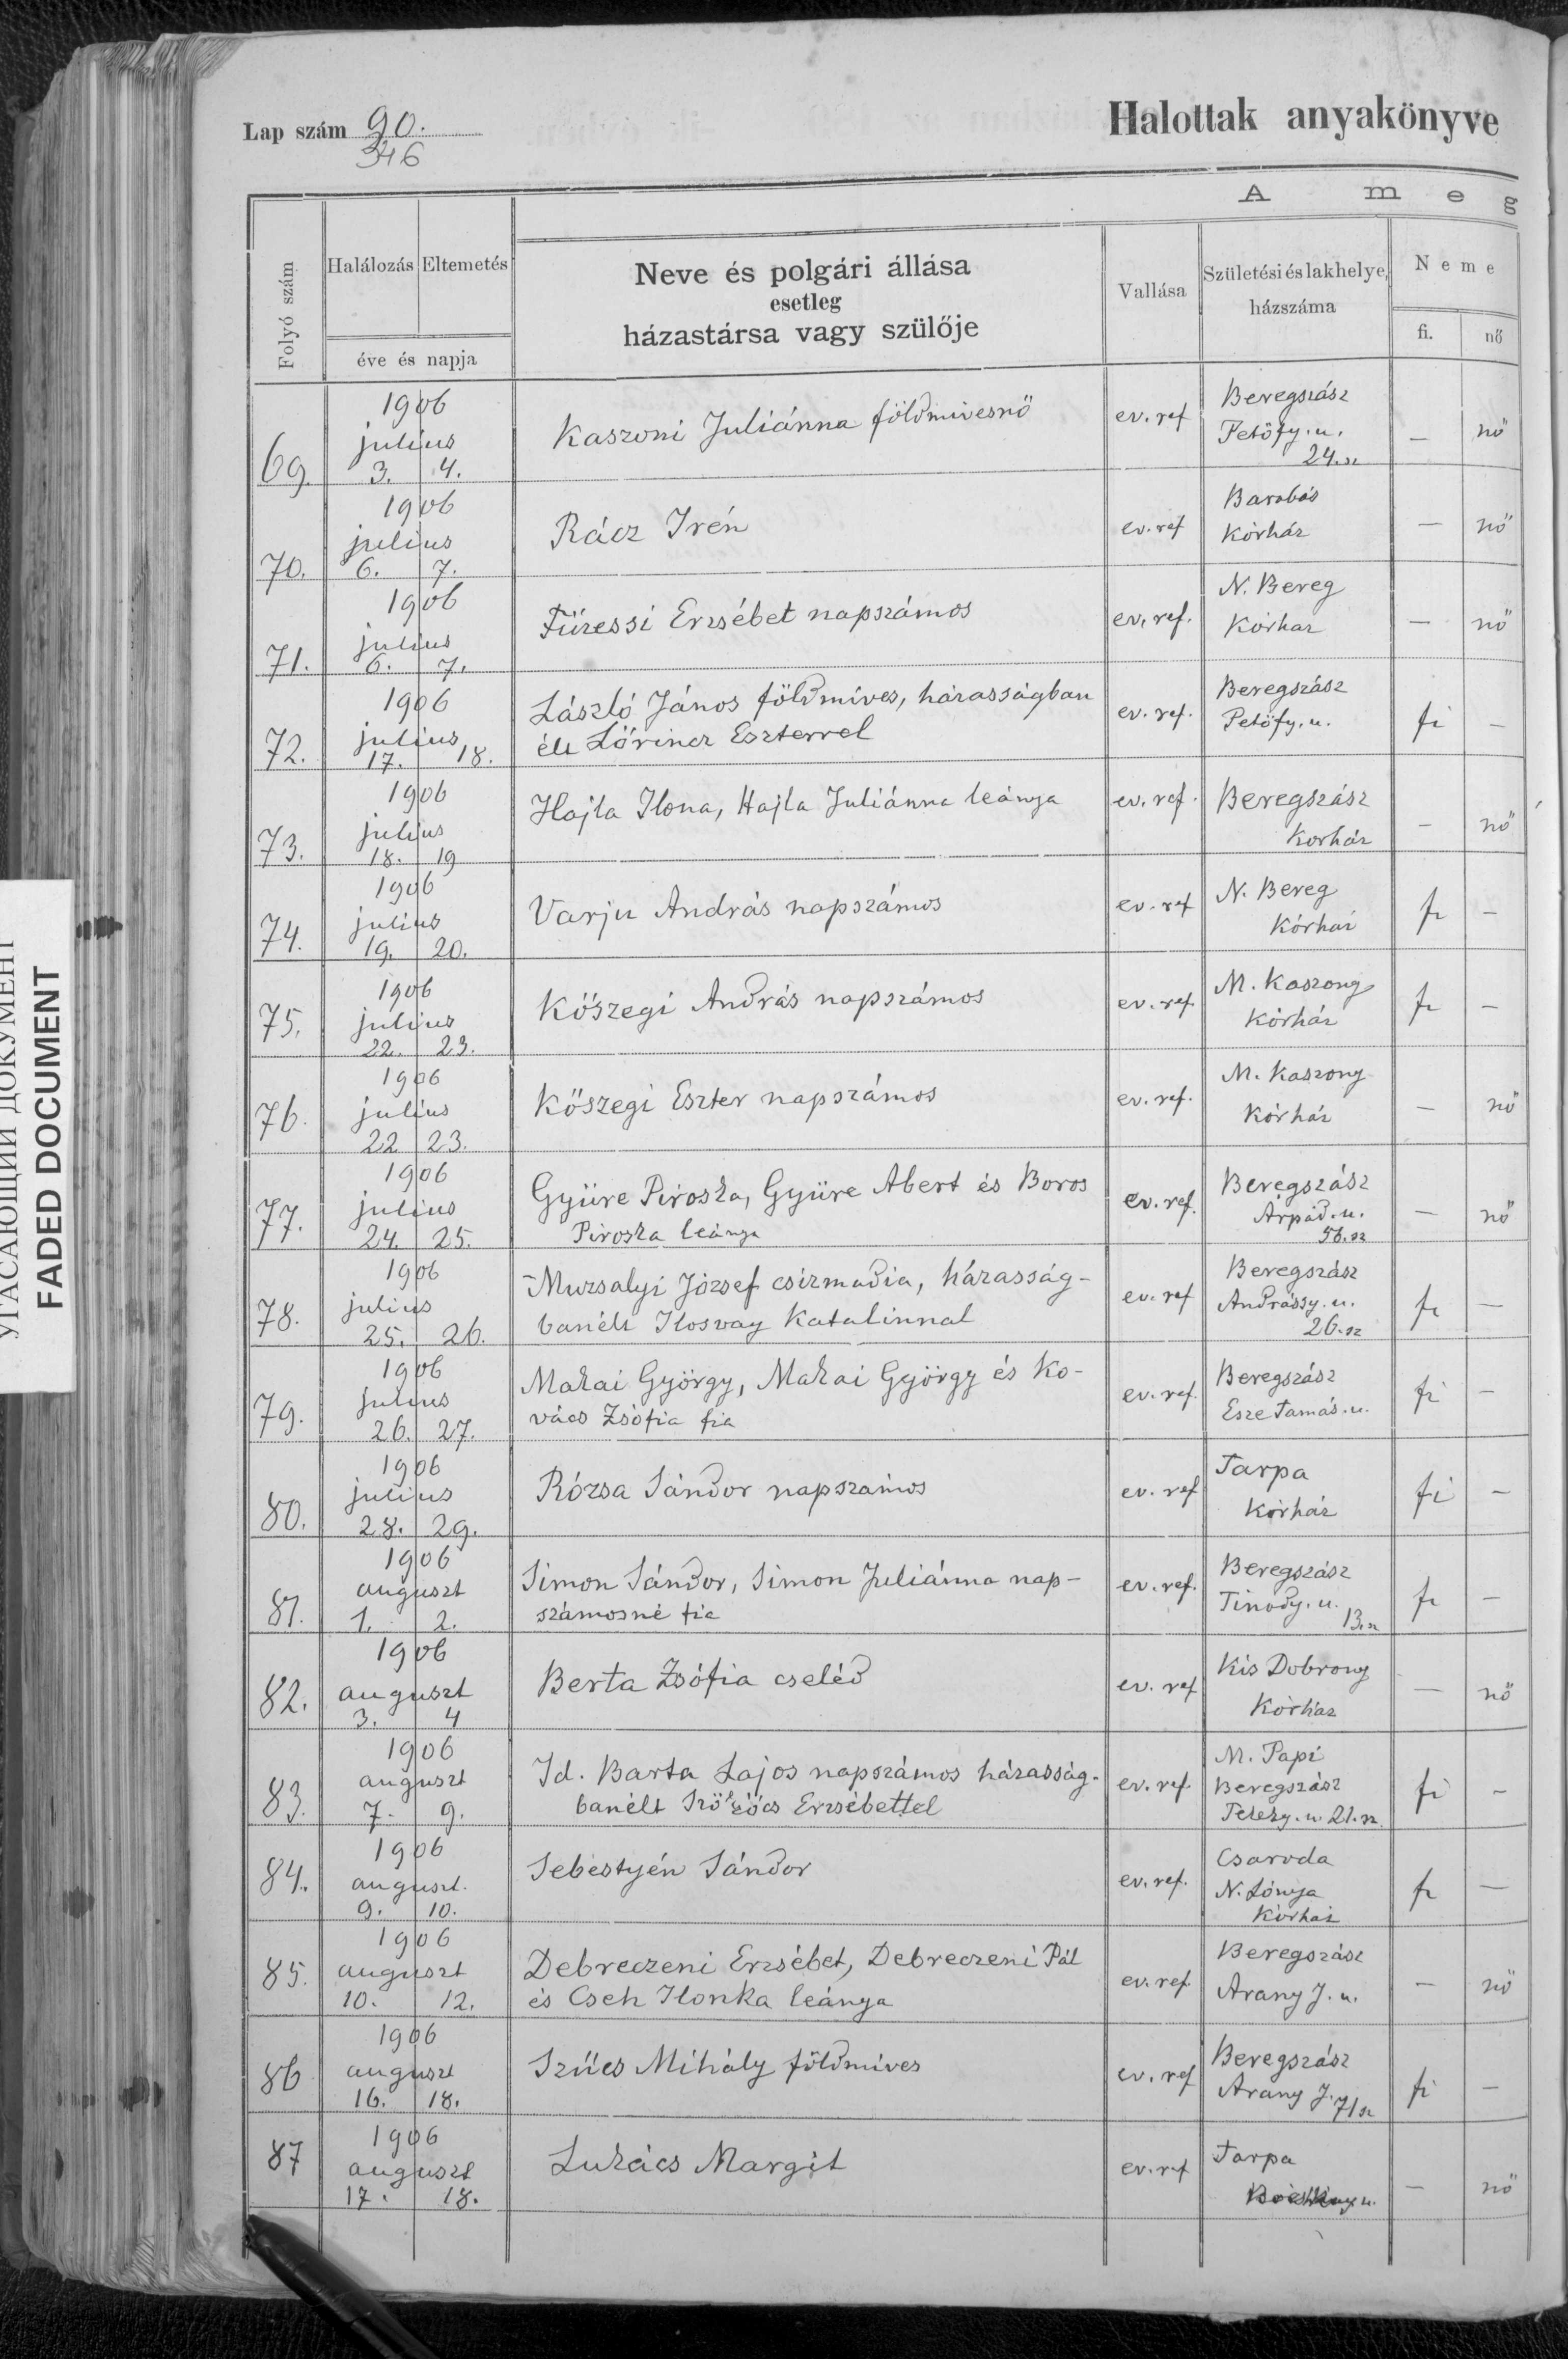 Lap szám 90.
346
Halottak anyakönyve
A m e g
Folyó szám
Halálozás Eltemetés
éve és napja
Neve és polgári állása
esetleg
házastársa vagy szülője
Vallása
Születési és lakhelye,
házszáma
Neme
fi. nő
69. 1906 julius 3. 4. Kaszoni Juliánna földmivesnő ev. ref Beregszász Petőfy. u. 24. sz — nő
70. 1906 julius 6. 7. Rácz Irén ev. ref Barabás Kórház — nő
71. 1906 julius 6. 7. Füzessi Erzsébet napszámos ev. ref. N. Bereg Kórház — nő
72. 1906 julius 17. 18. László János földmíves, házasságban
élt Lőrincz Eszterrel ev. ref. Beregszász Petőfy. u. fi —
73. 1906 julius 18. 19 Hajla Ilona, Hajla Juliánna leánya ev. ref. Beregszász Korház — nő
74. 1906 julius 19. 20. Varju András napszámos ev. ref N. Bereg Kórház fi —
75. 1906 julius 22. 23. Kőszegi András napszámos ev. ref M. Kaszony Kórház fi —
76. 1906 julius 22 23. Kőszegi Eszter napszámos ev. ref. M. Kaszony Kórház — nő
77. 1906 julius 24. 25. Gyüre Piroska, Gyüre Abert és Boros
Piroska leánya ev. ref. Beregszász Árpád. u. 56. sz — nő
78. 1906 julius 25. 26. Muzsalyi József csizmadia, házasság-
banélt Ilosvay Katalinnal ev. ref Beregszász Andrássy. u. 26. sz fi —
79. 1906 julius 26. 27. Makai György, Makai György és Ko-
vács Zsófia fia ev. ref. Beregszász Esze Tamás. u. fi —
80. 1906 julius 28. 29. Rózsa Sándor napszámos ev. ref Tarpa Kórház fi —
81. 1906 auguszt 1. 2. Simon Sándor, Simon Juliánna nap-
számosné fia ev. ref. Beregszász Tinódy. u. 13. sz fi —
82. 1906 auguszt 3. 4 Berta Zsófia cseléd ev. ref Kis Dobrony Kórház — nő
83. 1906 auguszt 7. 9. Id. Barta Lajos napszámos házasság-
banélt Erzsébettel ev. ref. M. Papi Beregszász u 21. sz fi —
84. 1906 auguszt. 9. 10. Sebestyén Sándor ev. ref. Csaroda N. Lónya Kórház fi —
85. 1906 auguszt 10. 12. Debreczeni Erzsébet, Debreczeni Pál
és Cseh Ilonka leánya ev. ref Beregszász Arany J. u. — nő
86 1906 auguszt 16. 18. Szűcs Mihály földmíves ev. ref Beregszász Arany J. 71 sz fi —
87 1906 auguszt 17. 18. Lukács Margit ev. ref Tarpa u. — nő
УГАСАЮЩИЙ ДОКУМЕНТ
FADED DOCUMENT